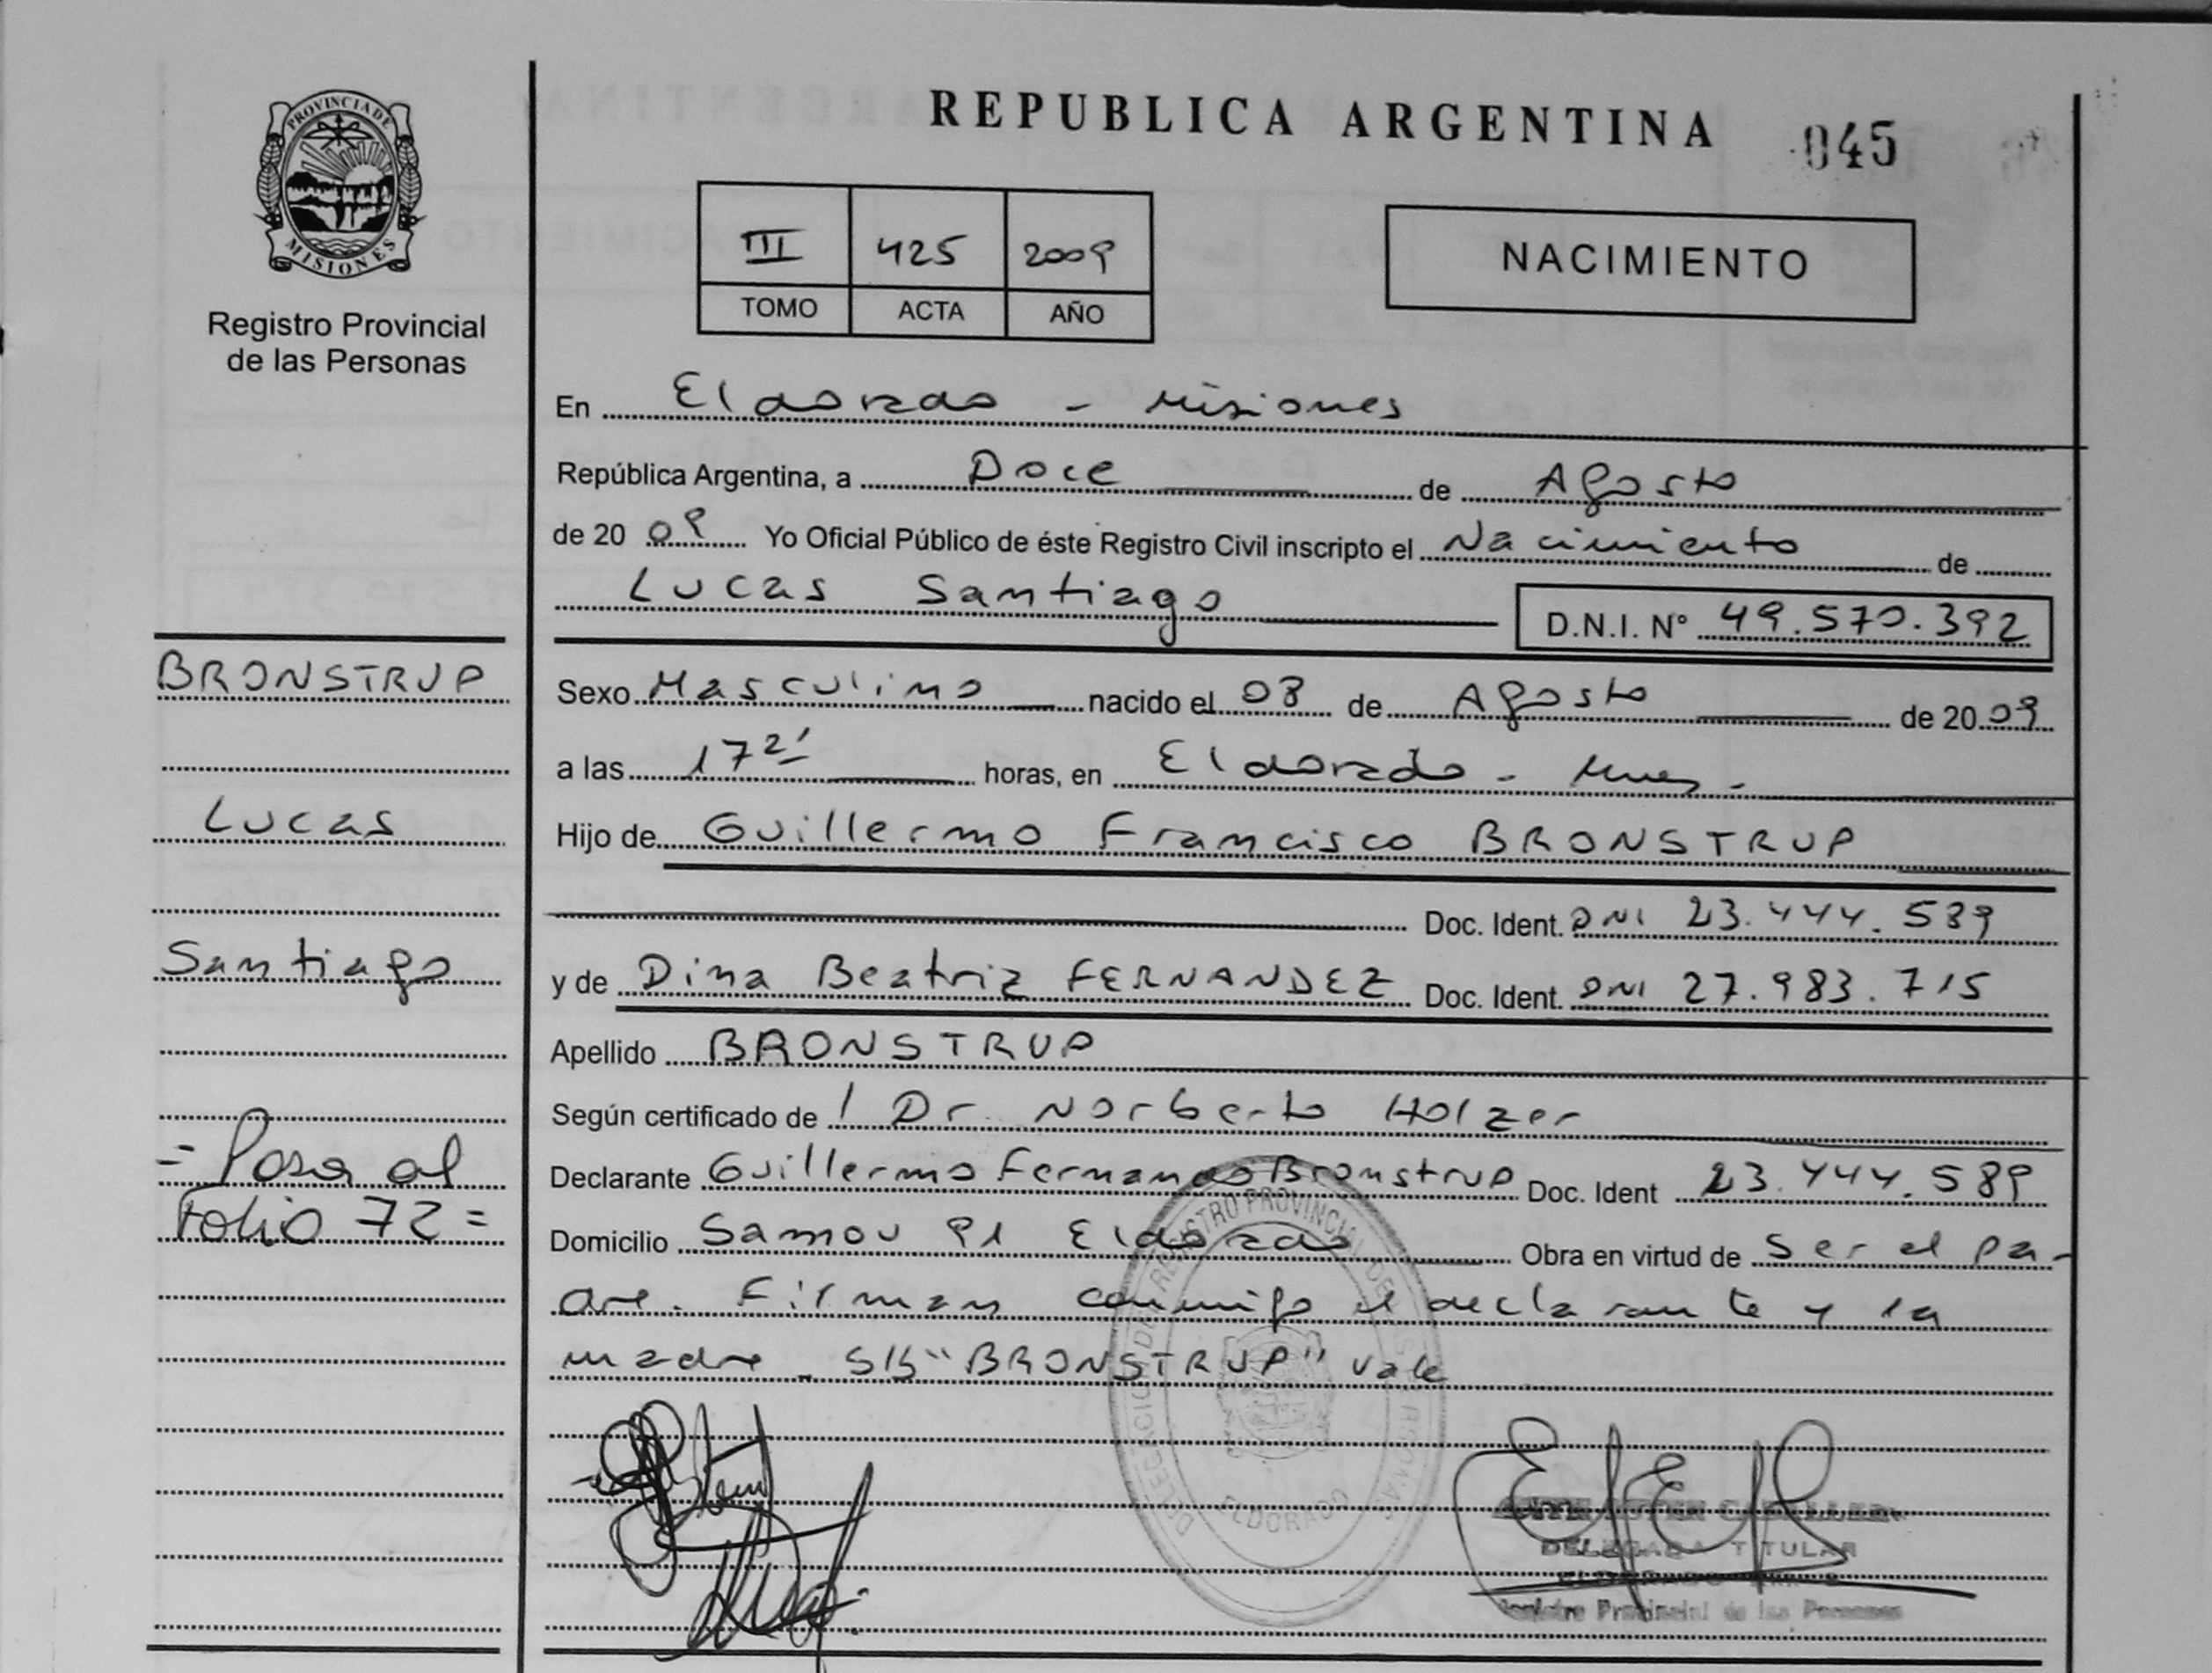 PROVINCIA DE
MISIONES
Registro Provincial
de las Personas
REPUBLICA ARGENTINA
045
III 425 2009
TOMO ACTA AÑO
NACIMIENTO
En Eldorado - Misiones
República Argentina, a Doce de Agosto
de 20 09 Yo Oficial Público de éste Registro Civil inscripto el Nacimiento de
Lucas Santiago D.N.I. N° 49.570.392
BRONSTRUP
Lucas
Santiago
= Pasa al
Folio 72 =
Sexo Masculino nacido el 08 de Agosto de 20 09
a las 17 21 horas, en Eldorado - Mnes -
Hijo de Guillermo Francisco BRONSTRUP
Doc. Ident. DNI 23.444.589
y de Dina Beatriz FERNANDEZ Doc. Ident. DNI 27.983.715
Apellido BRONSTRUP
Según certificado de / Dr. Norberto Holzer
Declarante Guillermo Fernando Bronstrup Doc. Ident 23.444.589
Domicilio Samou 91 Eldorado Obra en virtud de Ser el pa-
dre. Firman conmigo el declarante y la
madre - S/B "BRONSTRUP" vale
ELDORADO
DELEGADA TITULAR
Registro Provincial de las Personas